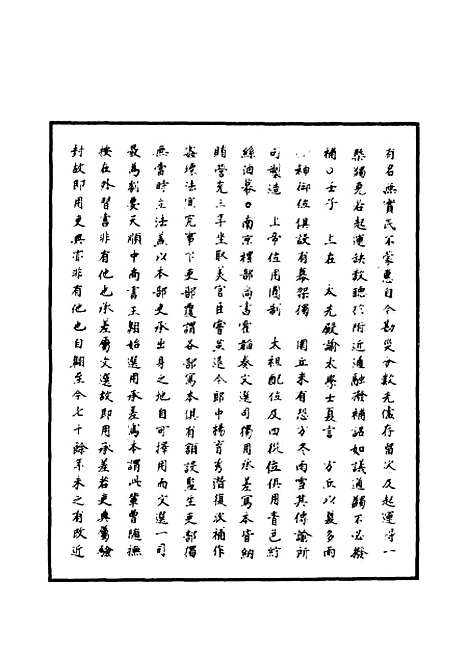 有名無實民不蒙惠自今勘災分數先儘存留次及起運毋一
槩獨免若起運缺數聽於附近通融撥補詔如議通蠲不必撥
補○壬子 上在 太光殿諭太學士夏言 方丘以夏多雨
神御位俱設有幕架獨 圜丘未有恐方冬雨雪其傳諭所
司製造 上帝位用圓制 太祖配位及四從位俱用青色紵
絲油幕○南京禮部尚書霍韜奏文選司獨用承差寫本皆納
賄營充三年坐取美官臣嘗英退今郎中楊育秀潛復次補作
姦壞法宜究事下吏部覆謂各部寫本俱有額設監生吏部獨
無當時立法蓋以本部吏承出身之地自可擇用而文選一司
最為制要天順中尚書王翱始選用承差寫本謂此輩曾隨撫
按在外習書非有他也承差屬文選故即用承差若吏典屬驗
封故即用吏典亦非有他也自翱至今七十餘年未之有改近